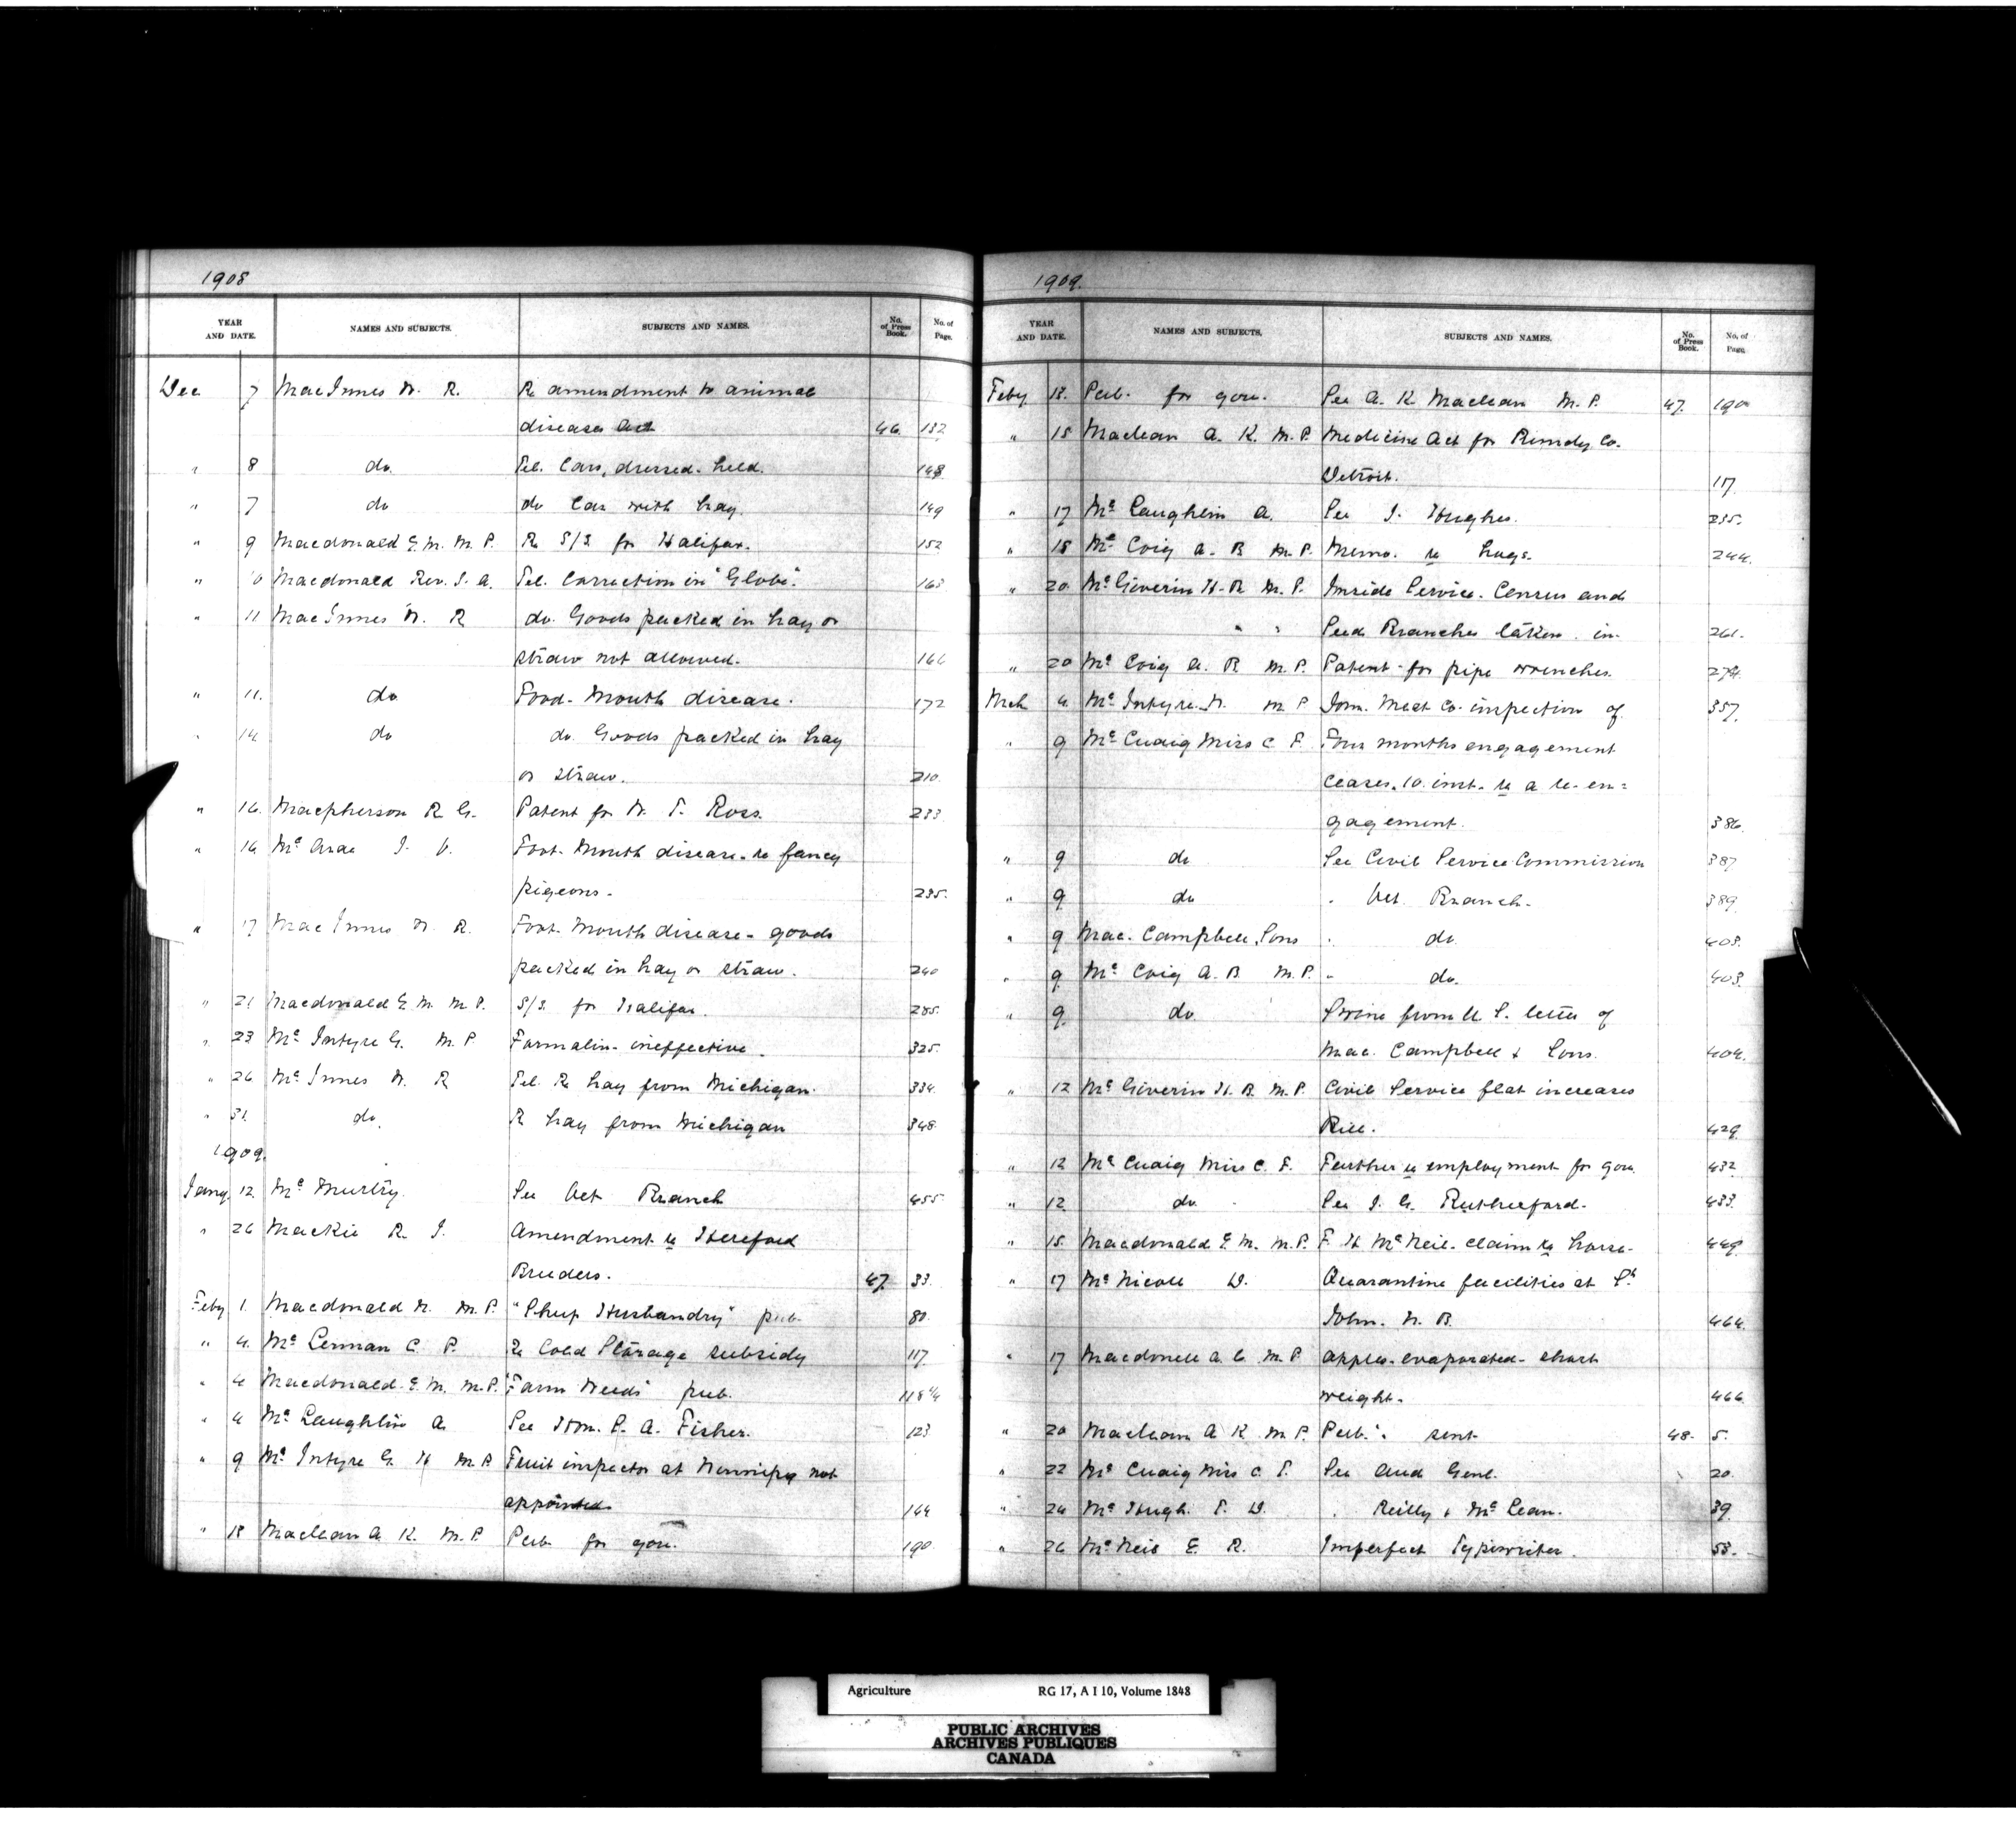 1908
YEAR AND DATE. NAMES AND SUBJECTS. SUBJECTS AND NAMES. No. of Press Book. No. of Page.
Dec 7 MacInnes W. R. Re amendment to animal
diseases Act 46. 132
" 8 do. Tel. Cars, dressed. held. 148
" 7 do do Car with hay. 149
" 9 Macdonald E. M. M. P. Re S/S. for Halifax. 152
" 10 Macdonald Rev. J. A. Tel. Correction in "Globe". 163
" 11 MacInnes W. R do. Goods packed in hay or
straw not allowed. 166
" 11. do Food. Mouth disease. 172
" 14 do do. Goods packed in hay
or straw. 210.
" 16. Macpherson R. G. Patent for W. T. Ross. 233
" 16 Mc J. V. Foot. Mouth disease. re fancy
pigeons. 235.
" 17 MacInnes W. R. Foot. Mouth disease. goods
packed in hay or straw. 240
" 21 Macdonald E. M. M. P. S/S. for Halifax. 285.
" 23 Mc Intyre G. M P Formalin. ineffective. 325.
" 26 Mc Innes W. R Tel. Re hay from Michigan. 334.
" 31. do. R hay from Michigan 348.
1909.
Jany. 12. Mc Murtry. See Vet Branch 455
" 26 Mackie R. J. Amendment re Hereford
Breeders. 47. 33.
Feby 1. Macdonald W. M. P. "Sheep Husbandry" pub. 80.
" 4. Mc Lennan C. P. Re Cold Storage subsidy 117.
" 4 Macdonald. E. M. M. P. "Farm Weeds" pub. 118 1/4
" 4 Mc Laughlin A. See Hon. S. A. Fisher. 123
" 9 Mc Intyre G. H M P. Fruit inspector at Winnipeg not
appointed. 144
" 18 Maclean A K. M. P. Pub. for gov. 190
1909.
YEAR AND DATE. NAMES AND SUBJECTS. SUBJECTS AND NAMES. No. of Press Book. No. of Page.
Feby. 18. Pub. for gov. See A. K. Maclean M. P. 47. 190
" 15 Maclean A. K. M. P. Medicine Act for Remedy Co.
Detroit. 117.
" 17 Mc Laughlin A. See J. Hughes. 235.
" 18 Mc Coig A. B M. P. Memo. re hogs. 244.
" 20 Mc Giverin H. B. M. P. Inside Service. Census and
" " Seed Branches taken in. 261.
" 20 Mc Coig A. B. M. P. Patent for pipe wrenches. 274.
Mch 4. Mc Intyre. W. M P Dom. Meat Co. inspection of 357.
" 9 Mc Cuaig Miss C. F. Four months engagement
ceases. 10. inst. re a re-en=
gagement. 386.
" 9 do See Civil Service Commission 387
" 9 do " Vet. Branch. 389.
" 9 Mac. Campbell, Sons " do. 403.
" 9 Mc Coig A. B. M. P. " do. 403.
" 9 do. Swine from U. S. letter of
Mac. Campbell & Sons. 404.
" 12 Mc Giverin H. B. M. P. Civil Service flat increases
Bill. 429.
" 12 Mc Cuaig Miss C. F. Further re employment for gov. 432
" 12 do. See J. G. Rutherford. 433.
" 15. Macdonald E. M. M. P. F. H McNeil. claim re horse. 449.
" 17 Mc Nicoll D. Quarantine facilities at St
John. N. B. 464.
" 17 Macdonell A. C. M. P apples. evaporated. short
weight. 466
" 20 Maclean A K M. P. Pub.s sent 48. 5.
" 22 Mc Cuaig Miss C. F. See Aud Genl. 20.
" 24 Mc Hugh. T. D. " Reilly & McLean. 39.
" 26 McNeil E. R. Imperfect Typewriter. 53.
Agriculture RG 17, A I 10, Volume 1848
PUBLIC ARCHIVES
ARCHIVES PUBLIQUES
CANADA